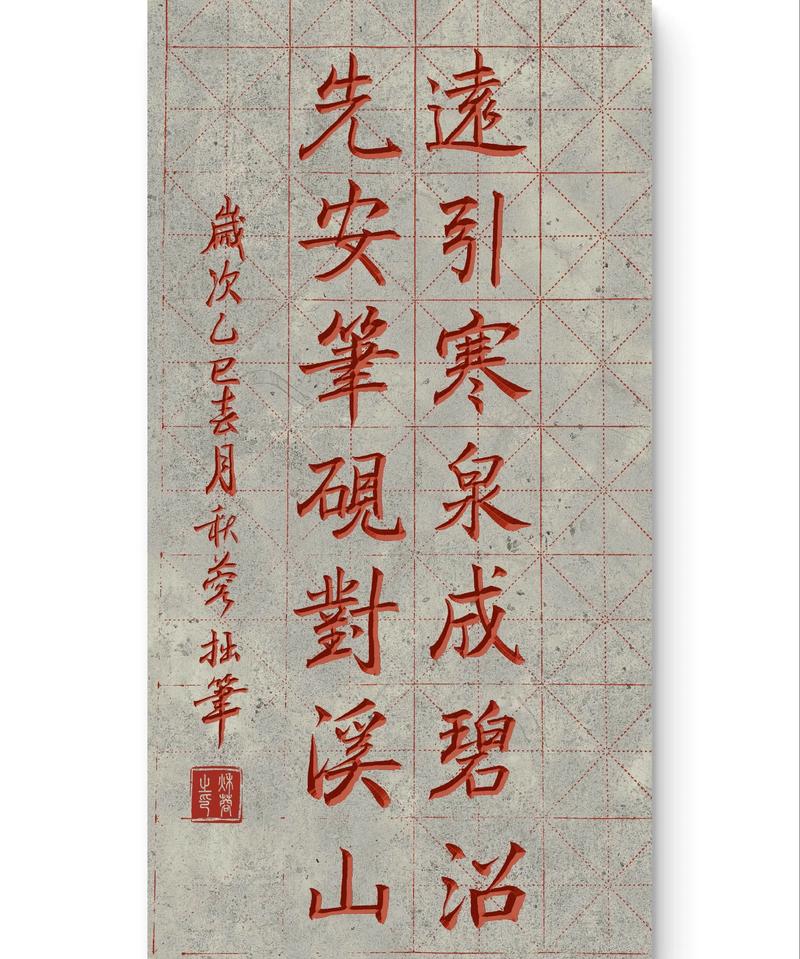 遠引寒泉成碧沼
先安筆硯對溪山
歲次乙巳春月秋蓉拙筆
秌蓉之印